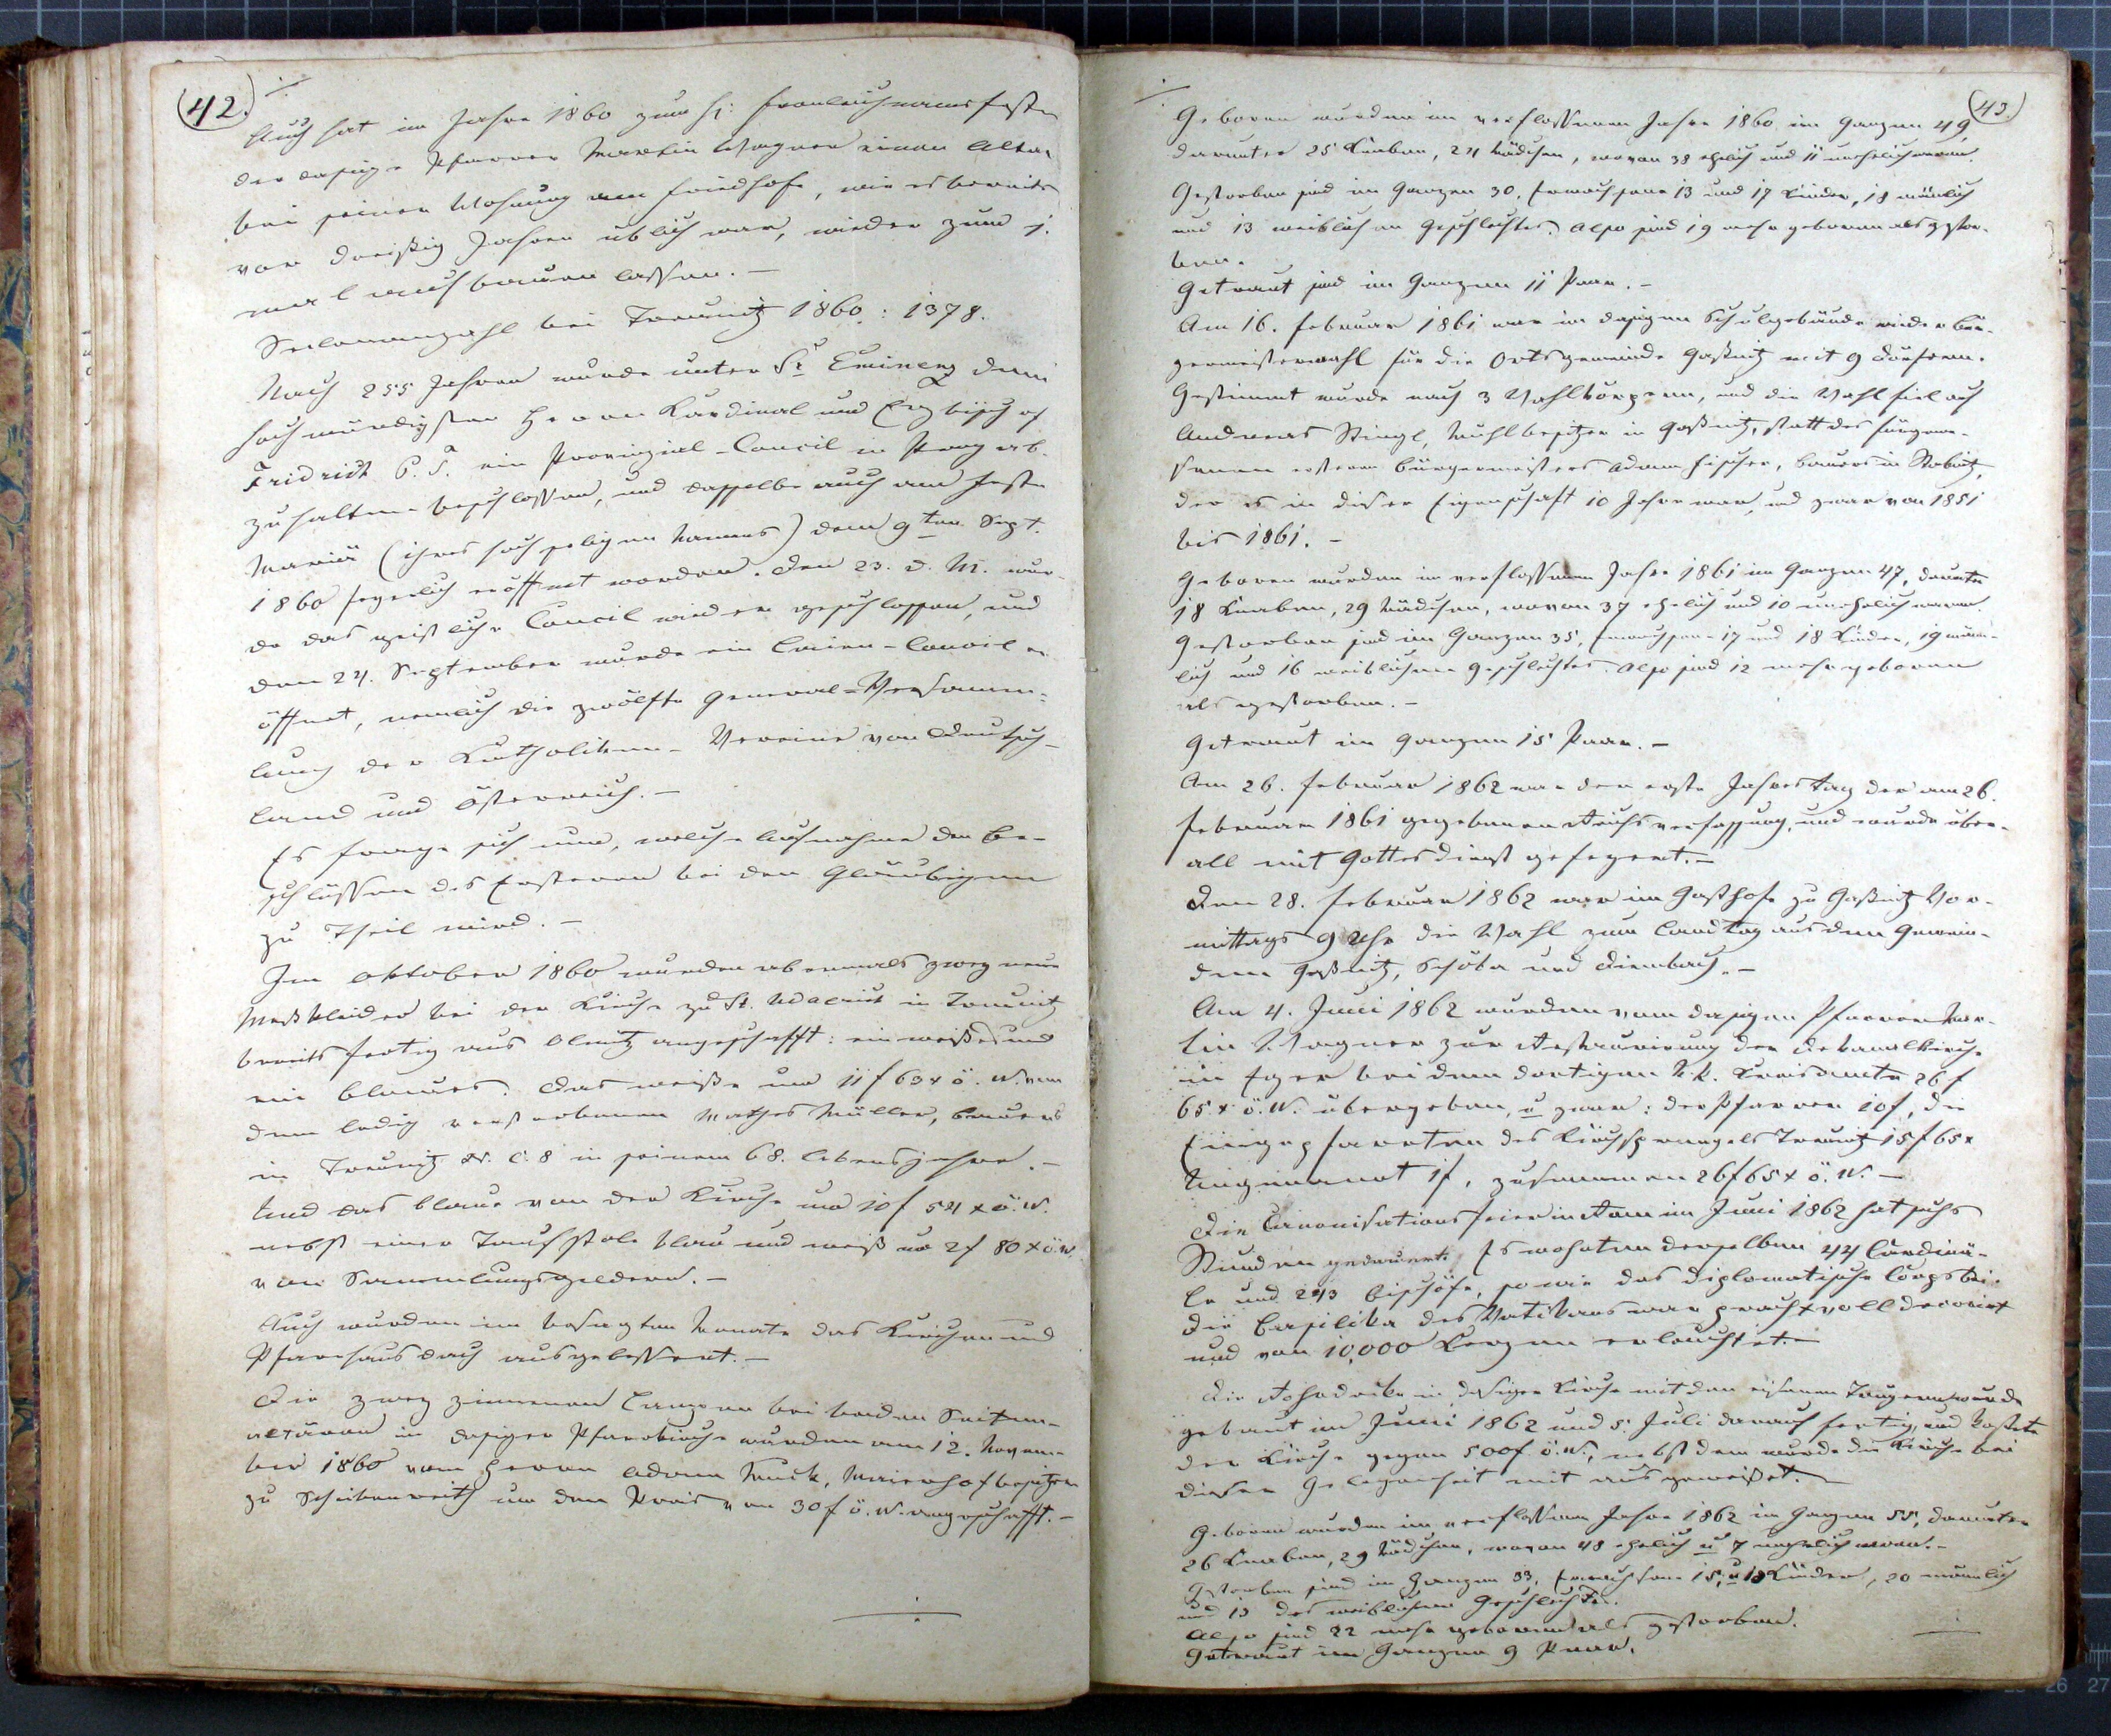 42.
Auch hat im Jahre 1860 zum hl: Fronleichnamsfeste
der dasige Pfarrer Martin Wagner einen Altar
bei seiner Wohnung am Friedhofe, wie es bereits
vor dreißig Jahren üblich war, wieder zum 1.
mal aufbauen lassen. —
Seelenanzahl bei Treunitz 1860: 1378.
Nach 255 Jahren wurde unter Sr Eminenz dem
hochwürdigsten Herrn Kardinal und Erzbischof
Fridrich P. T. ein Provinzial-Concil in Prag ab-
zuhalten beschlossen, und dasselbe auch am Feste
Mariä (ihres hochseligen Namens) dem 9ten Sept.
1860 feyerlich eröffnet worden. Den 23. d. M. wur-
de das geistliche Concil wieder geschlossen, und
den 24. September wurde ein Laien-Concil er-
öffnet, nemlich die zwölfte General-Versamm-
lung der Katholiken-Vereine von Deutsch-
land und Österreich. —
Es frage sich nun, welche Aufnahme den Be-
schlüssen des Ersteren bei den Gläubigen
zu Theil wird. —
Im Oktober 1860 wurden abermals zwey neue
Meßkleider bei der Kirche zu St. Udalrich in Treunitz
bereits fertig aus Olmütz angeschafft: ein weißes und
ein blaues. Das weiße um 11 f 63 x ö. W. von
dem ledig verstorbenen Mathes Müller, Bauers
in Treunitz N. C. 8 in seinem 68. Lebensjahre. —
Und das blaue von der Kirche um 10 f 54 x ö. W.
nebst einer Taufstole blau und weiß um 2 f 80 x ö. W.
von Sammlungsgeldern. —
Auch wurden im besagten Monate das Kirchen und
Pfarrhausdach ausgebessert. —
Die zwey zinnenen Lampen bei beiden Seiten-
altären in dasiger Pfarrkirche wurden am 12. Novem-
ber 1860 vom Herrn Adam Frank, Maierhofbesitzer
zu Scheibenreith um den Preis von 30 f ö. W. angeschafft. —
43.
Geboren wurden im verflossenen Jahre 1860 im Ganzen 49,
darunter 25 Knaben, 24 Mädchen, wovon 38 ehelich und 11 unehelich waren.
Gestorben sind im Ganzen 30. Erwachsene 13 und 17 Kinder, 18 männlich
und 13 weiblichen Geschlechtes. Also sind 19 mehr geboren als gestor-
ben.
Getraut sind im Ganzen 11 Paar. —
Am 16. Februar 1861 war im dasigen Schulgebäude wieder Bür-
germeisterwahl für die Ortsgemeinde Gaßnitz mit 9 Dörfern.
Gestimmt wurde nach 3 Wahlkörpern, und die Wahl fiel auf
Andreas Stingl, Mühlbesitzer in Gaßnitz, statt des
ersteren Bürgermeisters Adam Fischer, Bauers in Stabnitz,
der es in dieser Eigenschaft 10 Jahre war, und zwar von 1851
bis 1861. —
Geboren wurden im verflossenen Jahre 1861 im Ganzen 47, darunter
18 Knaben, 29 Mädchen, wovon 37 ehelich und 10 unehelich waren.
Gestorben sind im Ganzen 35, Erwachsene 17 und 18 Kinder, 19 männ-
lich und 16 weiblichen Geschlechtes. Also sind 12 mehr geboren
als gestorben. —
Getraut im Ganzen 15 Paar. —
Am 26. Februar 1862 war der erste Jahrestag der am 26.
Februar 1861 gegebenen Reichsverfassung, und wurde über-
all mit Gottesdienst gefeyert. —
Den 28. Februar 1862 war im Gasthofe zu Gaßnitz Vor-
mittags 9 Uhr die Wahl zum Landtag aus den Gemein-
den Gaßnitz, Schöba und Diembach. —
Am 4. Juni 1862 wurden vom dasigen Pfarrer Mar-
tin Wagner zur Restaurirung der Dekanalkirche
in Eger bei dem dortigen k. k. Kreisamte 26 f
65 x ö. W. übergeben, u zwar: der Pfarrer 10 f, die
Eingepfarrten des Kirchsprengels Treunitz 15 f 65 x
Ungenannt 1 f, zusammen 26 f 65 x ö. W. —
Die Canonisationsfeier in Rom im Juni 1862 hat sechs
Stunden gedauert. Es wohnten derselben 44 Cardinä-
le und 243 Bischöfe, so wie das diplomatische Corps bei.
Die Basilika des Vatikans war prachtvoll decorirt
und von 10,000 Kerzen erleuchtet.
Die Rohrdecke in dasiger Kirche mit den eisernen wurde
gebaut im Juni 1862 und 5. Juli darauf fertig, und kostete
der Kirche gegen 500 f ö. W., nebst dem wurde die Kirche bei
dieser Gelegenheit mit ausgeweißet. —
Geboren wurden im verflossenen Jahre 1862 im Ganzen 55, darunter
26 Knaben, 29 Mädchen, wovon 48 ehelich u 7 unehelich waren. —
Gestorben sind im Ganzen 33, Erwachsene 15, u 18 Kinder, 20 männlich
und 13 des weiblichen Geschlechtes.
Also sind 22 mehr geboren als gestorben.
Getraut im Ganzen 9 Paar.
26 27